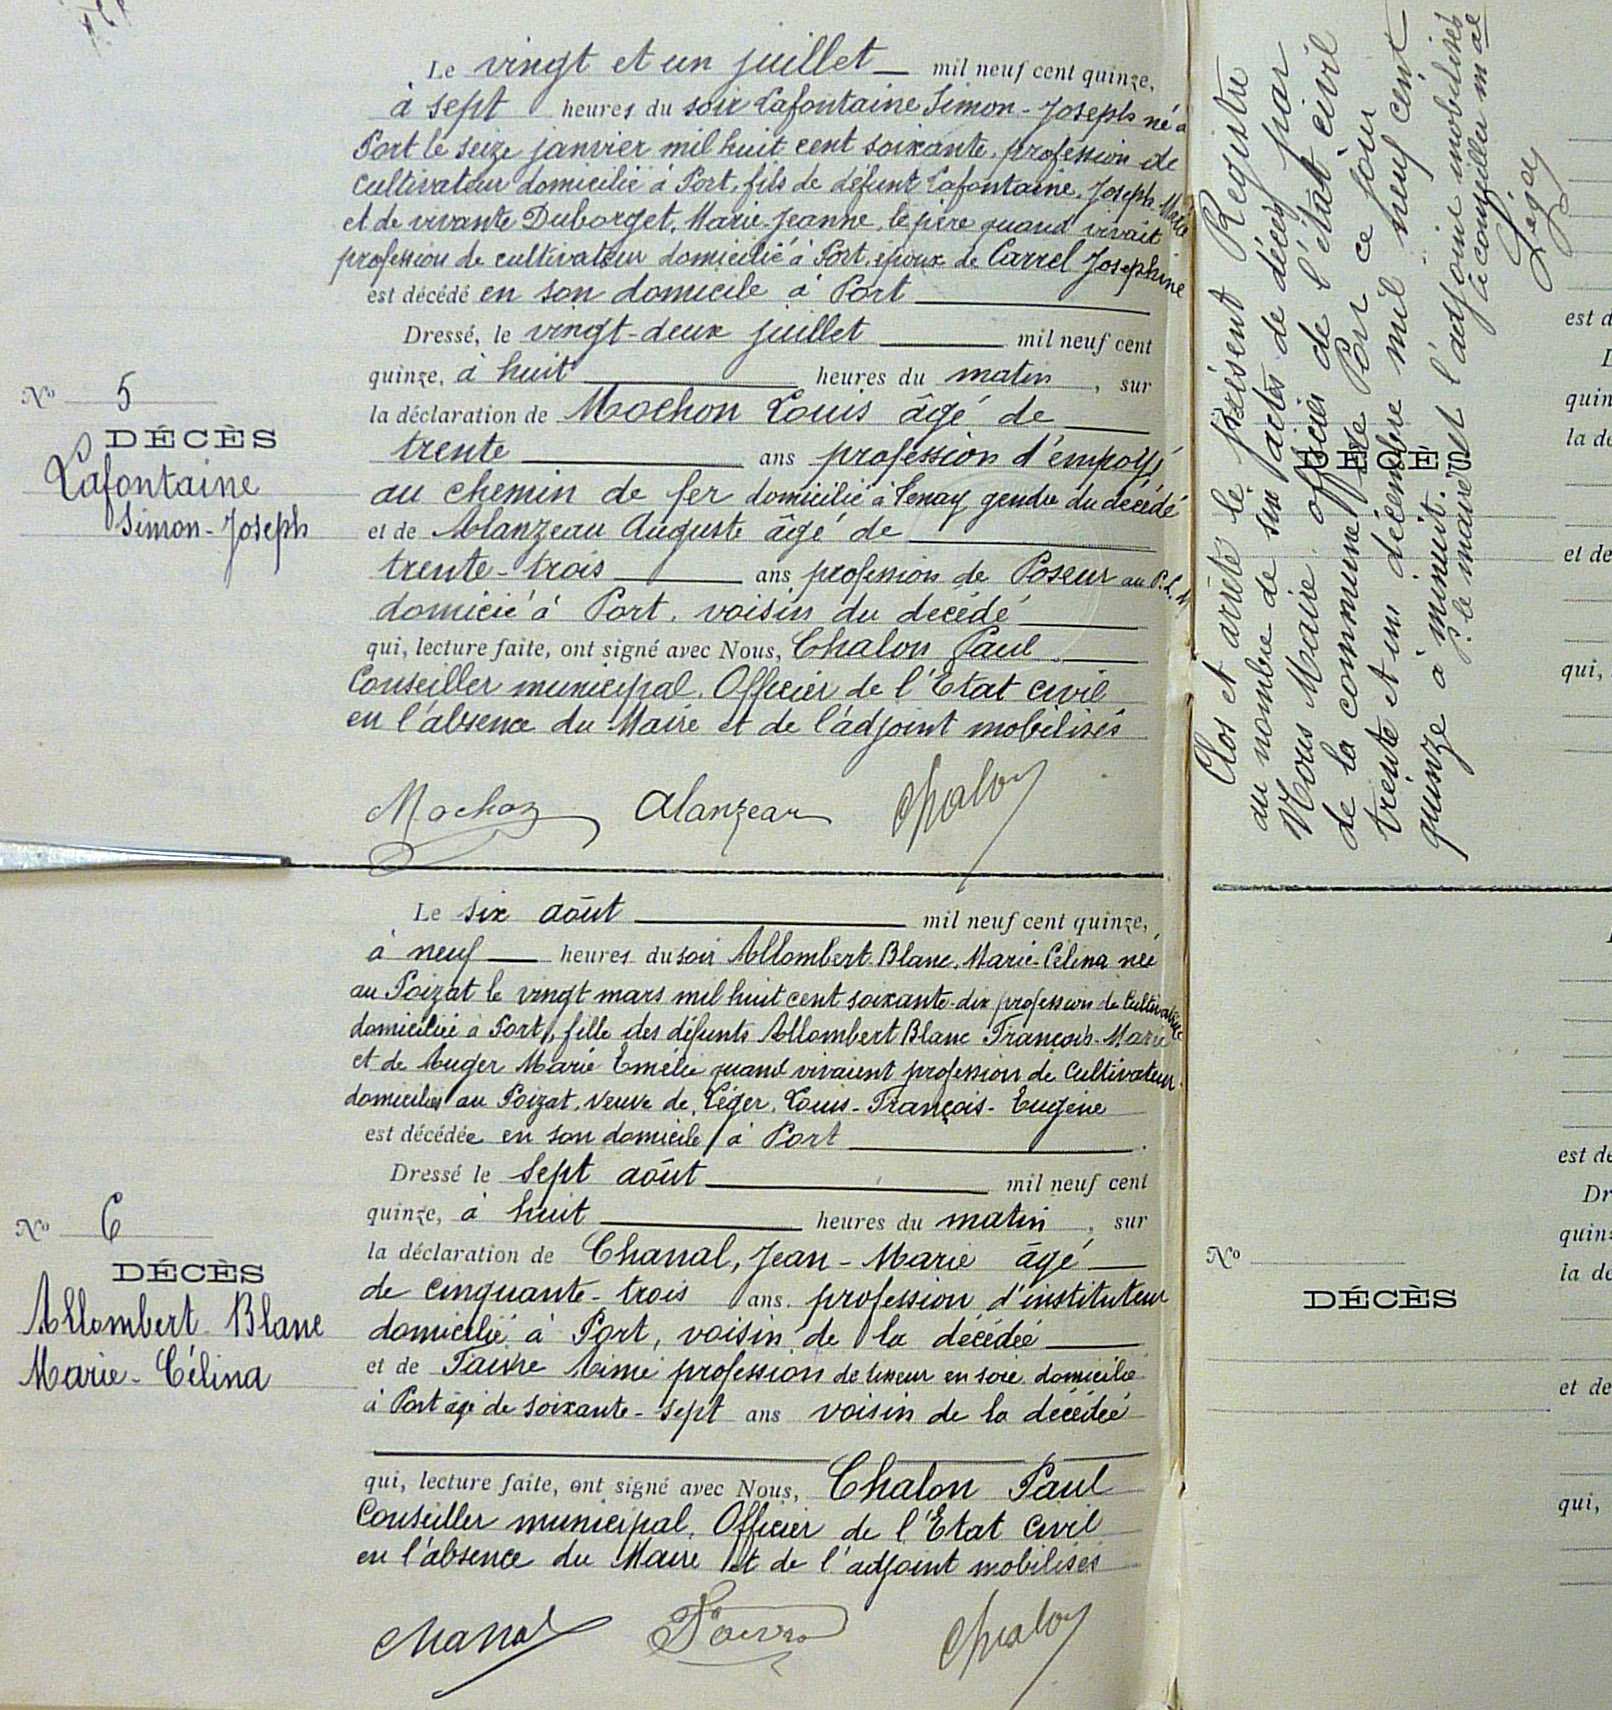 Le vingt et un juillet mil neuf cent quinze,
à sept heures du soir Lafontaine Simon-Joseph né à
Port le seize janvier mil huit cent soixante, profession de
cultivateur domicilié à Port, fils de défunt Lafontaine, Joseph-Marie
et de vivante Duborget, Marie-Jeanne, le père quand vivait
profession de cultivateur domicilié à Port, époux de Carrel Josephine
est décédé en son domicile à Port
Dressé, le vingt-deux juillet mil neuf cent
quinze, à huit heures du matin, sur
la déclaration de Mochon Louis âgé de
trente ans profession d'empoyé
au chemin de fer domicilié à Tenay, gendre du décédé
et de Alanzeau Auguste âgé de
trente-trois ans profession de Poseur au P.L.M
domicié à Port, voisin du decédé
qui, lecture faite, ont signé avec Nous, Chalon Paul
Conseiller municipal, Officier de l'Etat civil
en l'absence du Maire et de l'adjoint mobilisés
Mochon Alanzeau Chalon
No 5
DÉCÈS
Lafontaine
Simon-Joseph
Le six août mil neuf cent quinze,
à neuf heures du soir Allombert-Blanc, Marie-Célina née
au Poizat le vingt mars mil huit cent soixante-dix profession de Cultivatrice
domiciliée à Port, fille des défunts Allombert Blanc François-Marie
et de Auger Marie Emélie quand vivaient profession de Cultivateur
domiciliés au Poizat, veuve de Léger, Louis-François-Eugène
est décédée en son domicile à Port
Dressé le sept août mil neuf cent
quinze, à huit heures du matin, sur
la déclaration de Chanal, Jean-Marie âgé
de cinquante-trois ans profession d'instituteur
domicilié à Port, voisin de la décédée
et de Faivre Aimé profession de tisseur en soie domicilié
à Port âgé de soixante-sept ans voisin de la décédée
qui, lecture faite, ont signé avec Nous, Chalon Paul
Conseiller municipal, Officier de l'Etat civil
en l'absence du Maire et de l'adjoint mobilisés
Chanal Faivre Chalon
No 6
DÉCÈS
Allombert-Blanc
Marie-Célina
Clos et arrêté le présent Registre
au nombre de six actes de décès par
Nous Maire officier de l'état civil
de la commune de Port ce jour
trente et un décembre mil neuf cent
quinze à minuit.
P. le maire et l'adjoint mobilisés
Le conseiller mal
Léger
DÉCÈS
No
DÉCÈS
est d
quin
la dé
et de
qui,
est dé
Dr
quin
la dé
et de
qui,